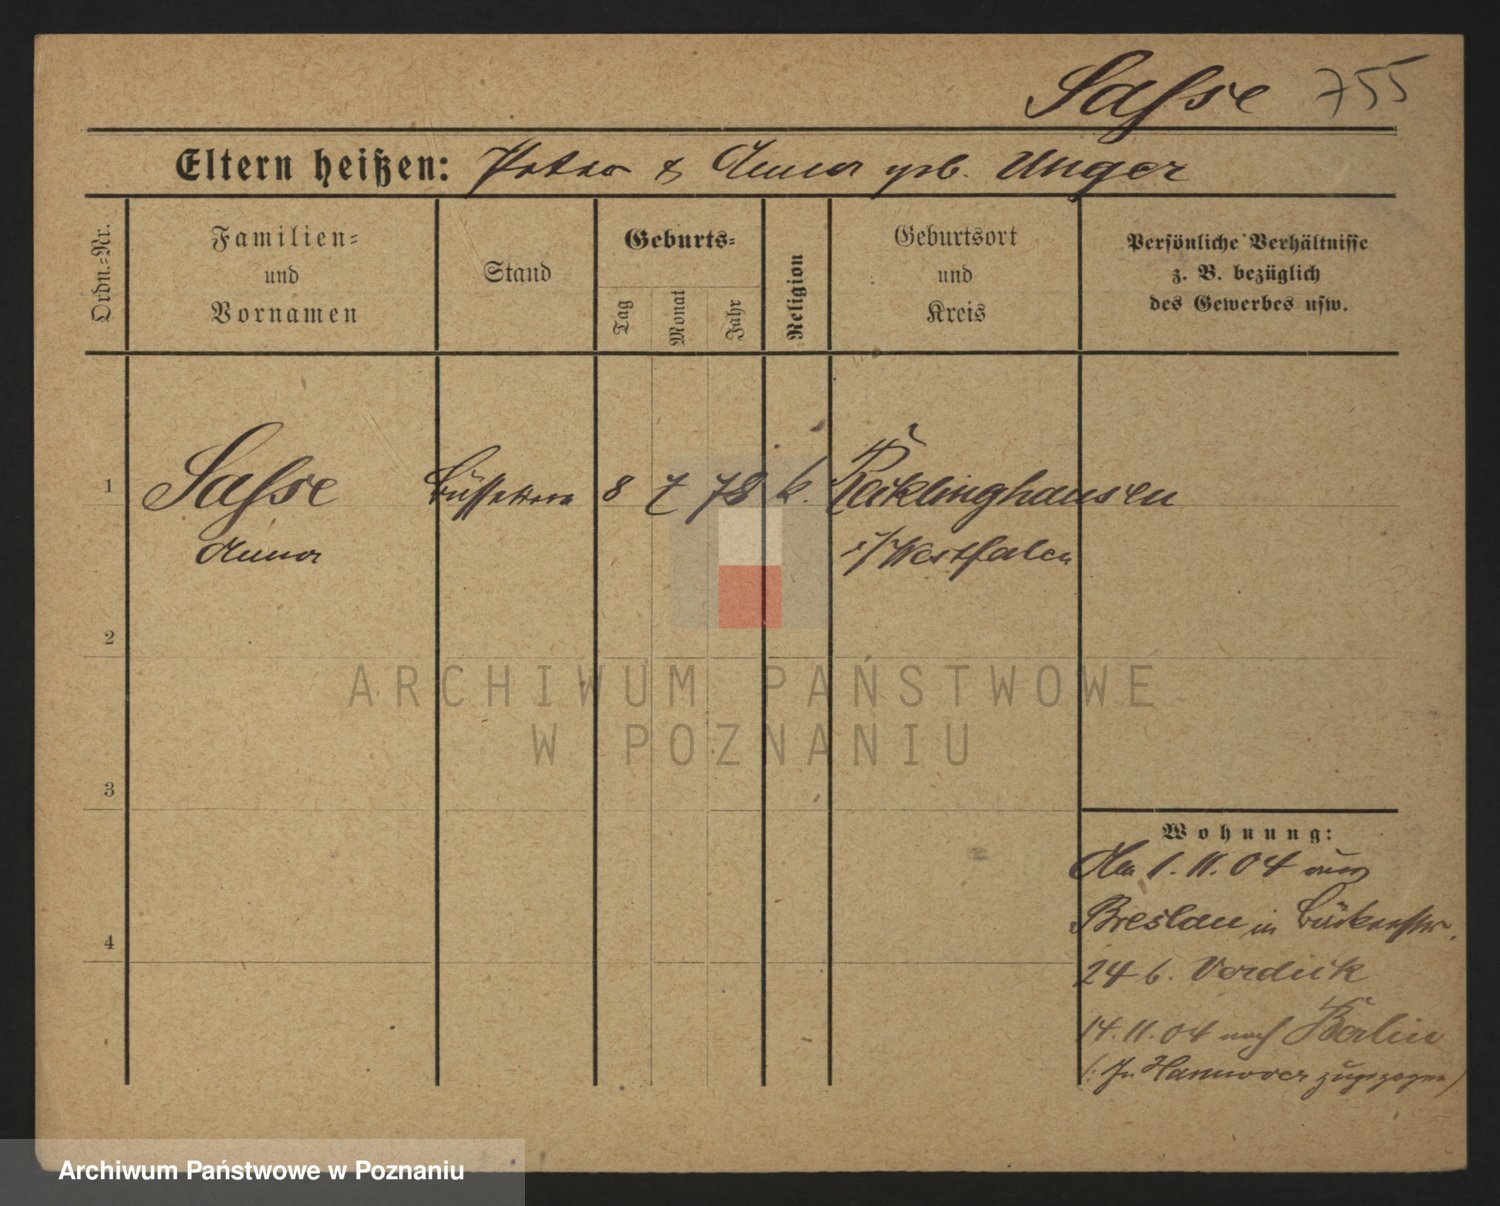 Sasse 755
Eltern heißen: Peter & Anna geb. Unger
Ordn.-Nr.
Familien-
und
Vornamen
Stand
Geburts-
Tag
Monat
Jahr
Religion
Geburtsort
und
Kreis
Persönliche Verhältnisse
z. B. bezüglich
des Gewerbes usw.
1 Sasse 8 7 78 k. Recklinghausen
Anna i/Westfalen
2
3
4
ARCHIWUM PAŃSTWOWE
W POZNANIU
Wohnung:
1.11.04 aus
Breslau in
24 b. Verdick
14.11.04 nach Berlin
(: In Hannover zugezogen)
Archiwum Państwowe w Poznaniu